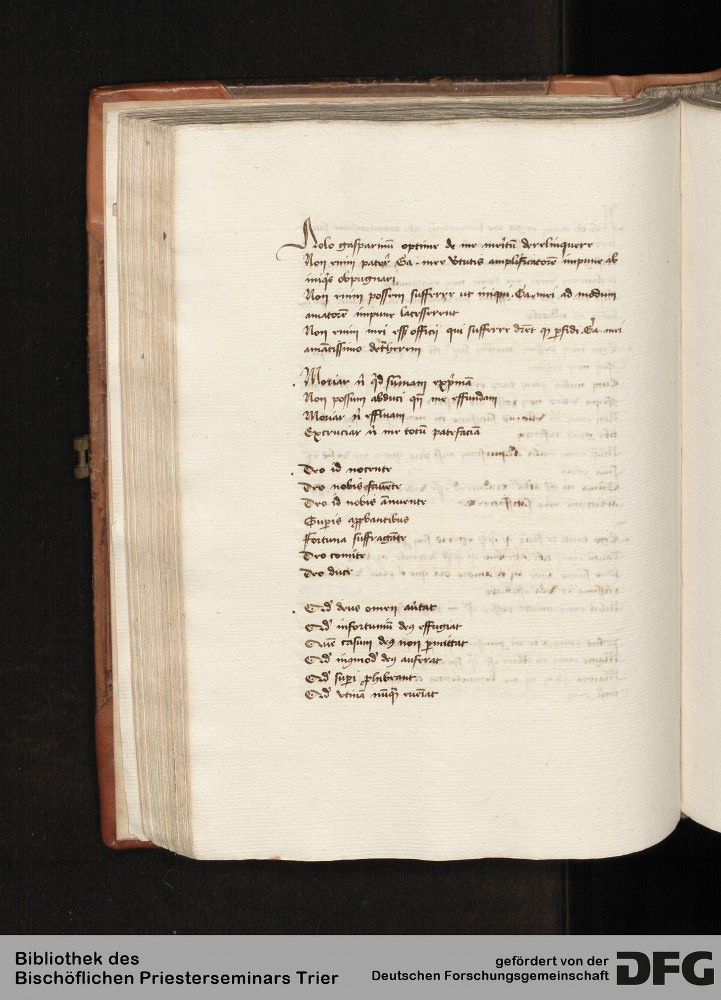 Nolo gasparinū optime de me meritū derelinquere
Non enim patet᷑ Ea. mee v̄tutis amplificatorē impune ab
iniqs̄ obpugnari
Non enim possem sufferre ut iniqui. Ea. mei ad modum
amatorē impune lacesserent
Non enim mei esset officij qui sufferre dret qp̄ p̄fidi. Ea. mei
amātissimo det̄herem
Moriar n̄ qd̄ sum̄am exp̄mā
Non possum abduci qn̄ me effundam
Moriar n̄ effluam
Excruciar n̄ me totū patefaciā
Deo id nocente
Deo nobis fauēte
Deo id nobis ānuente
Supis app̄bantibus
Fortuna suffragāte
Deo comite
Deo duce
Qd̄ deus omen aūtat
Qd̄ infortuniū deꝯ effugiat
Quē casum deꝯ non p̄mittat
Qd̄ deꝯ auferat
Qd̄ supi p̄hibeant
Qd̄ vtinā nūq̄ eueīat
Bibliothek des
Bischöflichen Priesterseminars Trier
gefördert von der
Deutschen Forschungsgemeinschaft
DFG